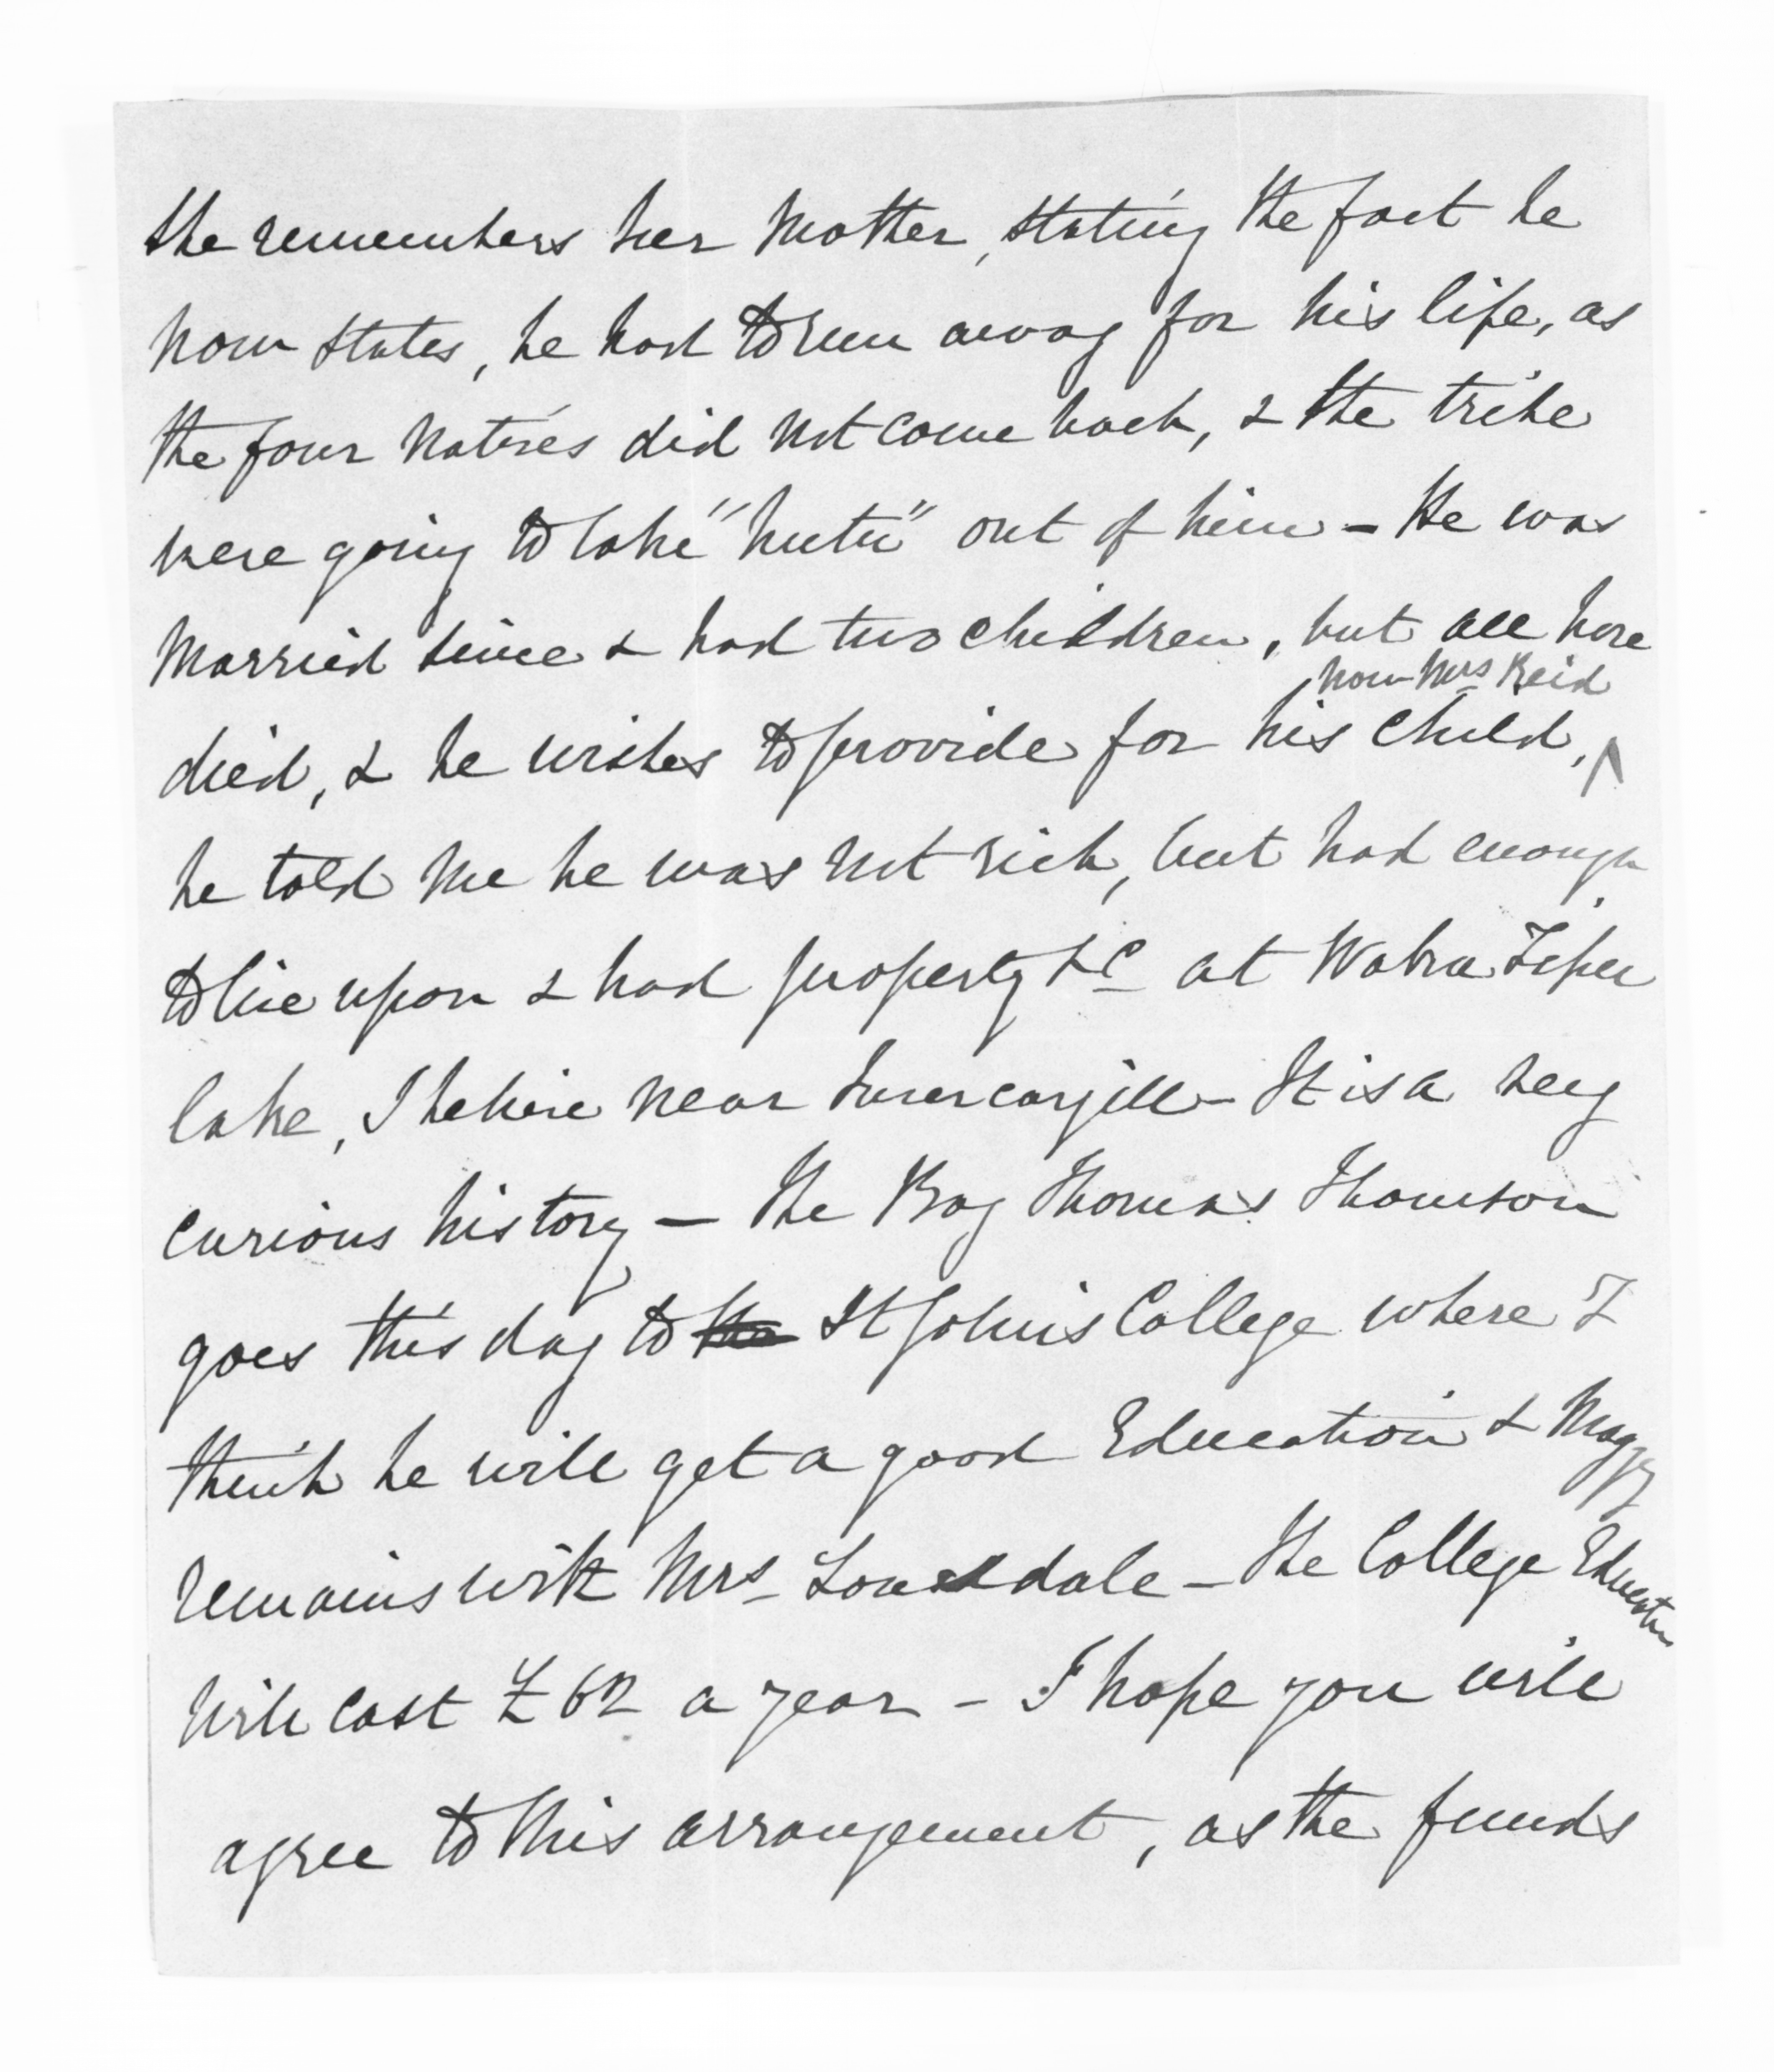 she remembers her Mother, stating the fact he
now states, he had to run away for his life, as
the four Natives did not come back, & the tribe
were going to take "hutu" out of him - He was
Married since & had two children, but all have
died, & he wishes to provide for his child,
now Mrs Reid
he told me he was not rich, but had enough
to live upon & had property &c at Waka Tipu
lake, I believe near Invercargill - It is a very
curious history - The Boy Thomas Thomson
goes this day to the St John's College where I
think he will get a good Education & Maggy
remains with Mrs Lonsdale - The College Education
will cost £62 a year - I hope you will
agree to this arrangement, as the funds